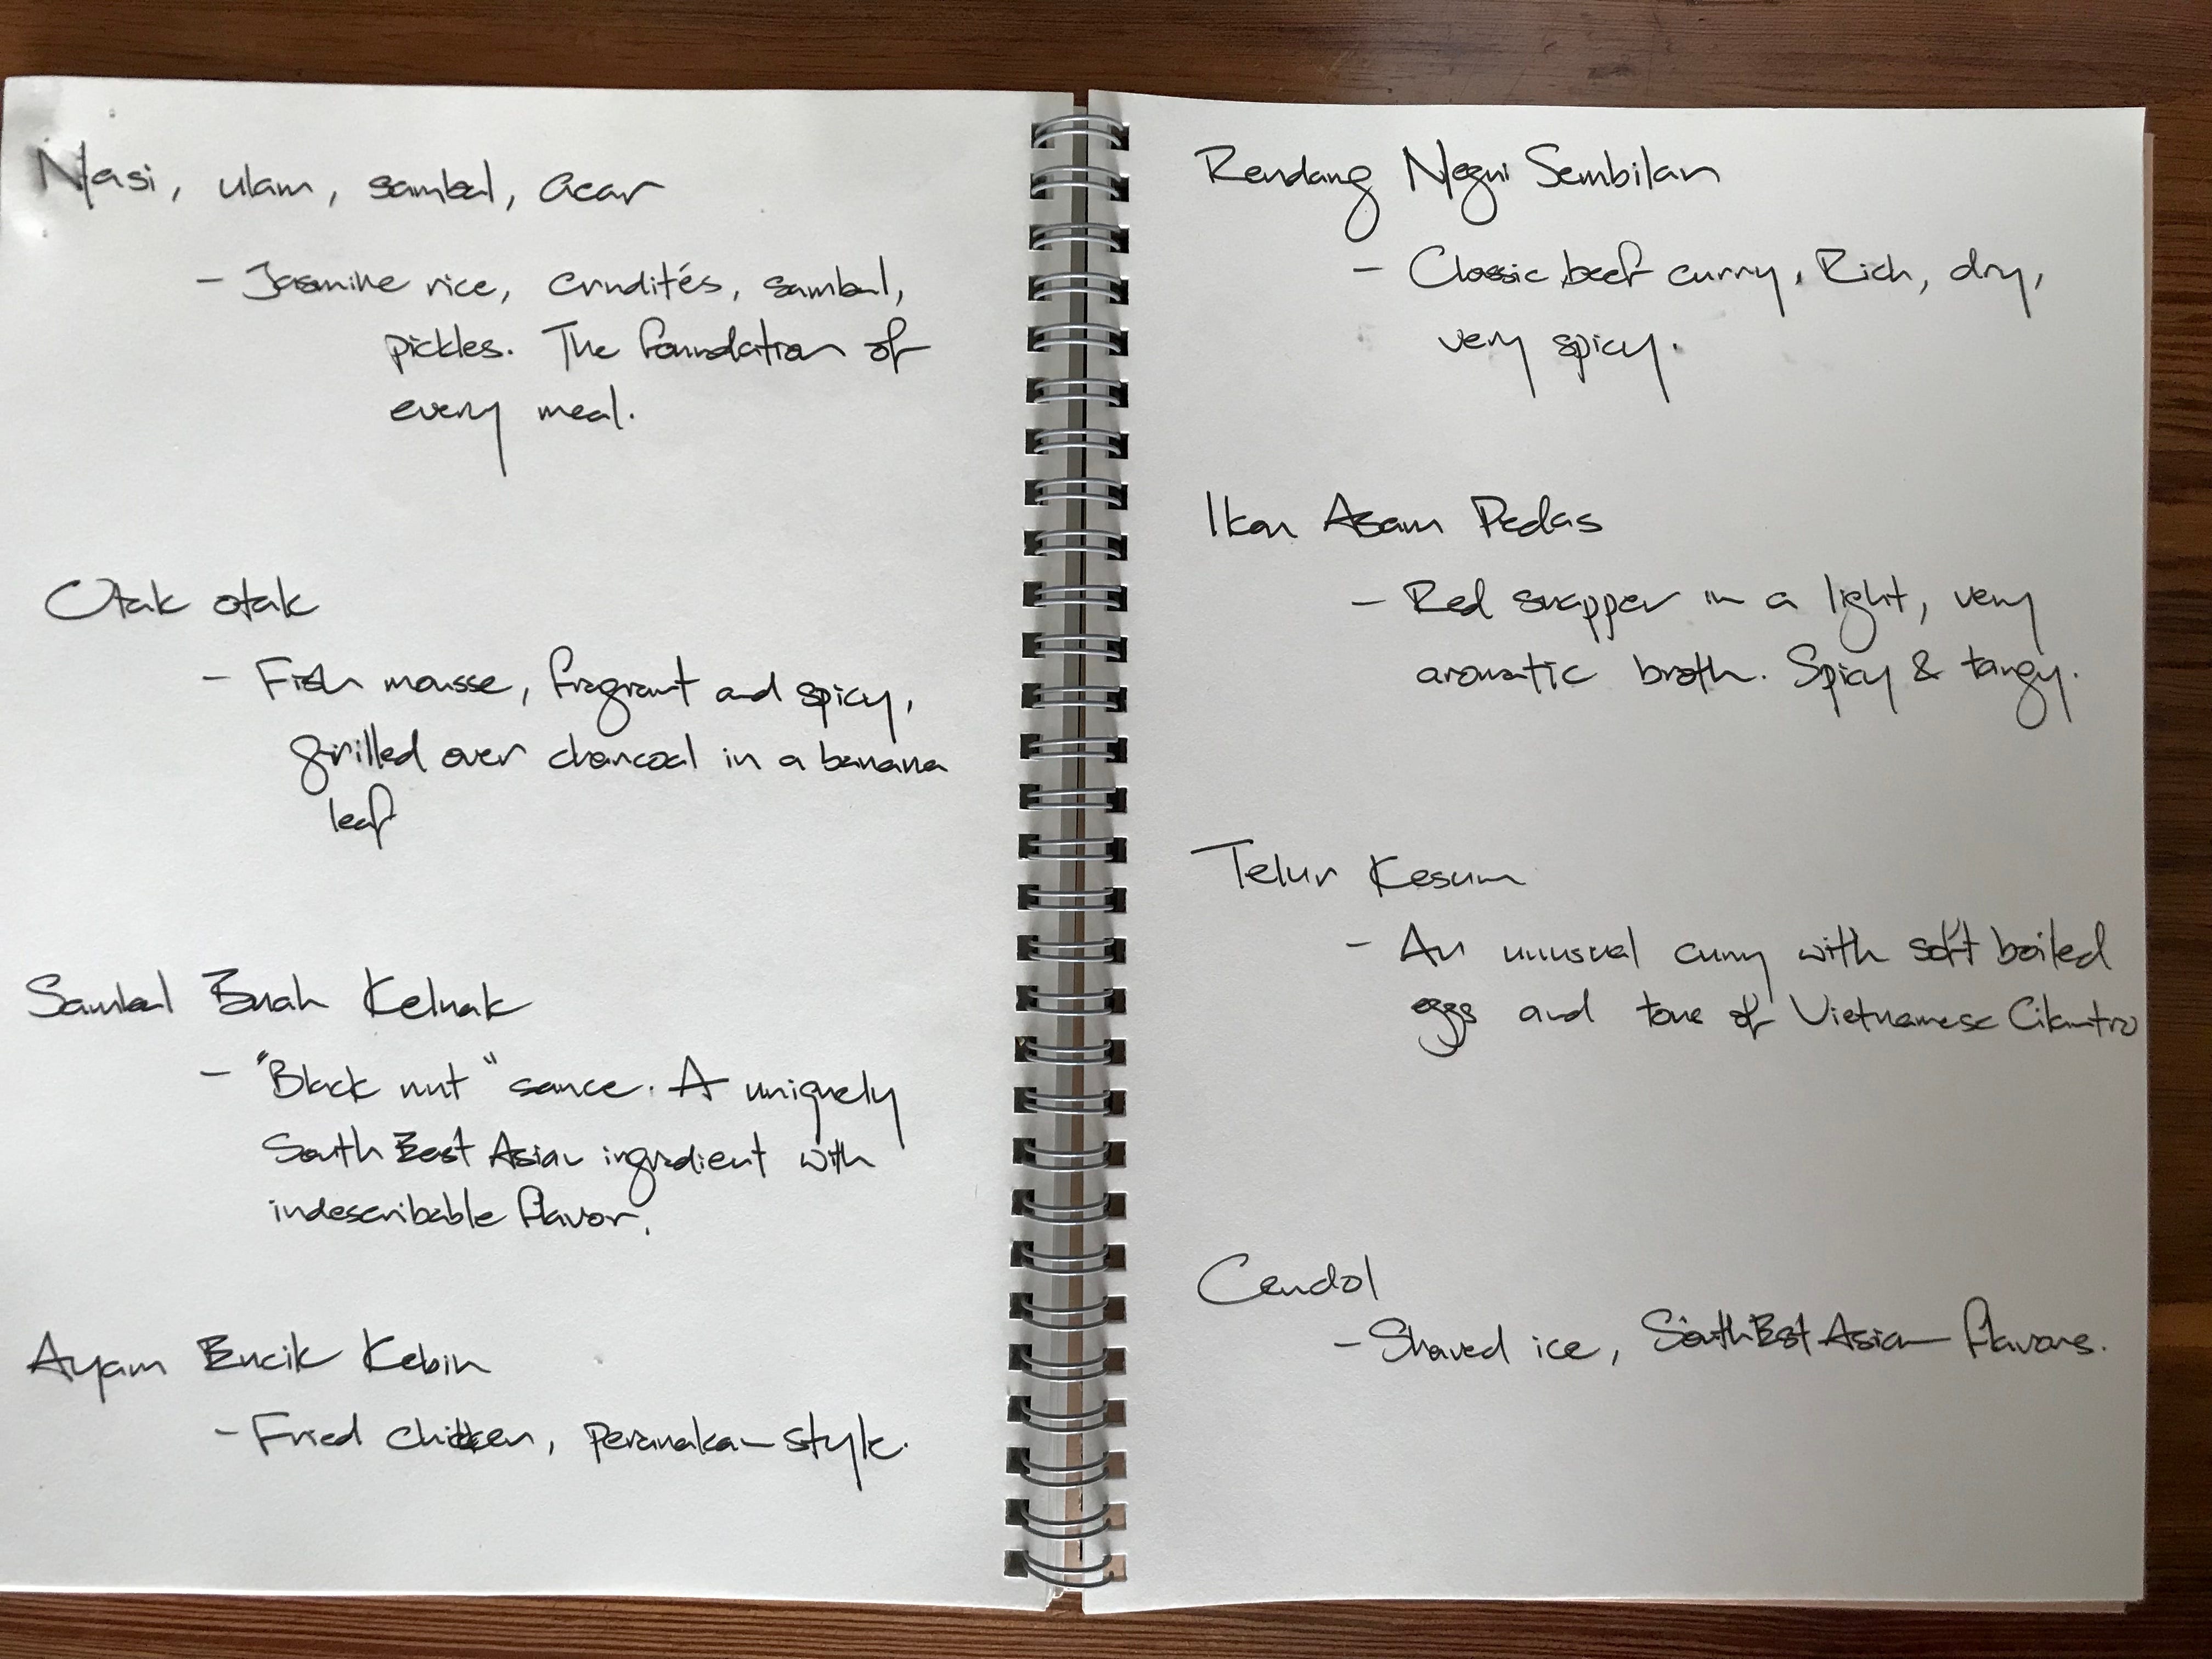 Nasi, ulam, sambal, acar
- Jasmine rice, crudités, sambal,
pickles. The foundation of
every meal.
Otak otak
- Fish mousse, fragrant and spicy,
grilled over charcoal in a banana
leaf
Sambal Buah Keluak
- "Black nut" sauce. A uniquely
South East Asian ingredient with
indescribable flavor.
Ayam Encik Kebin
- Fried chicken, peranakan style.
Rendang Negri Sembilan
- Classic beef curry. Rich, dry,
very spicy.
Ikan Asam Pedas
- Red snapper in a light, very
aromatic broth. Spicy & tangy.
Telur Kesum
- An unusual curry with soft boiled
eggs and tons of Vietnamese Cilantro
Cendol
- Shaved ice, South East Asian flavors.